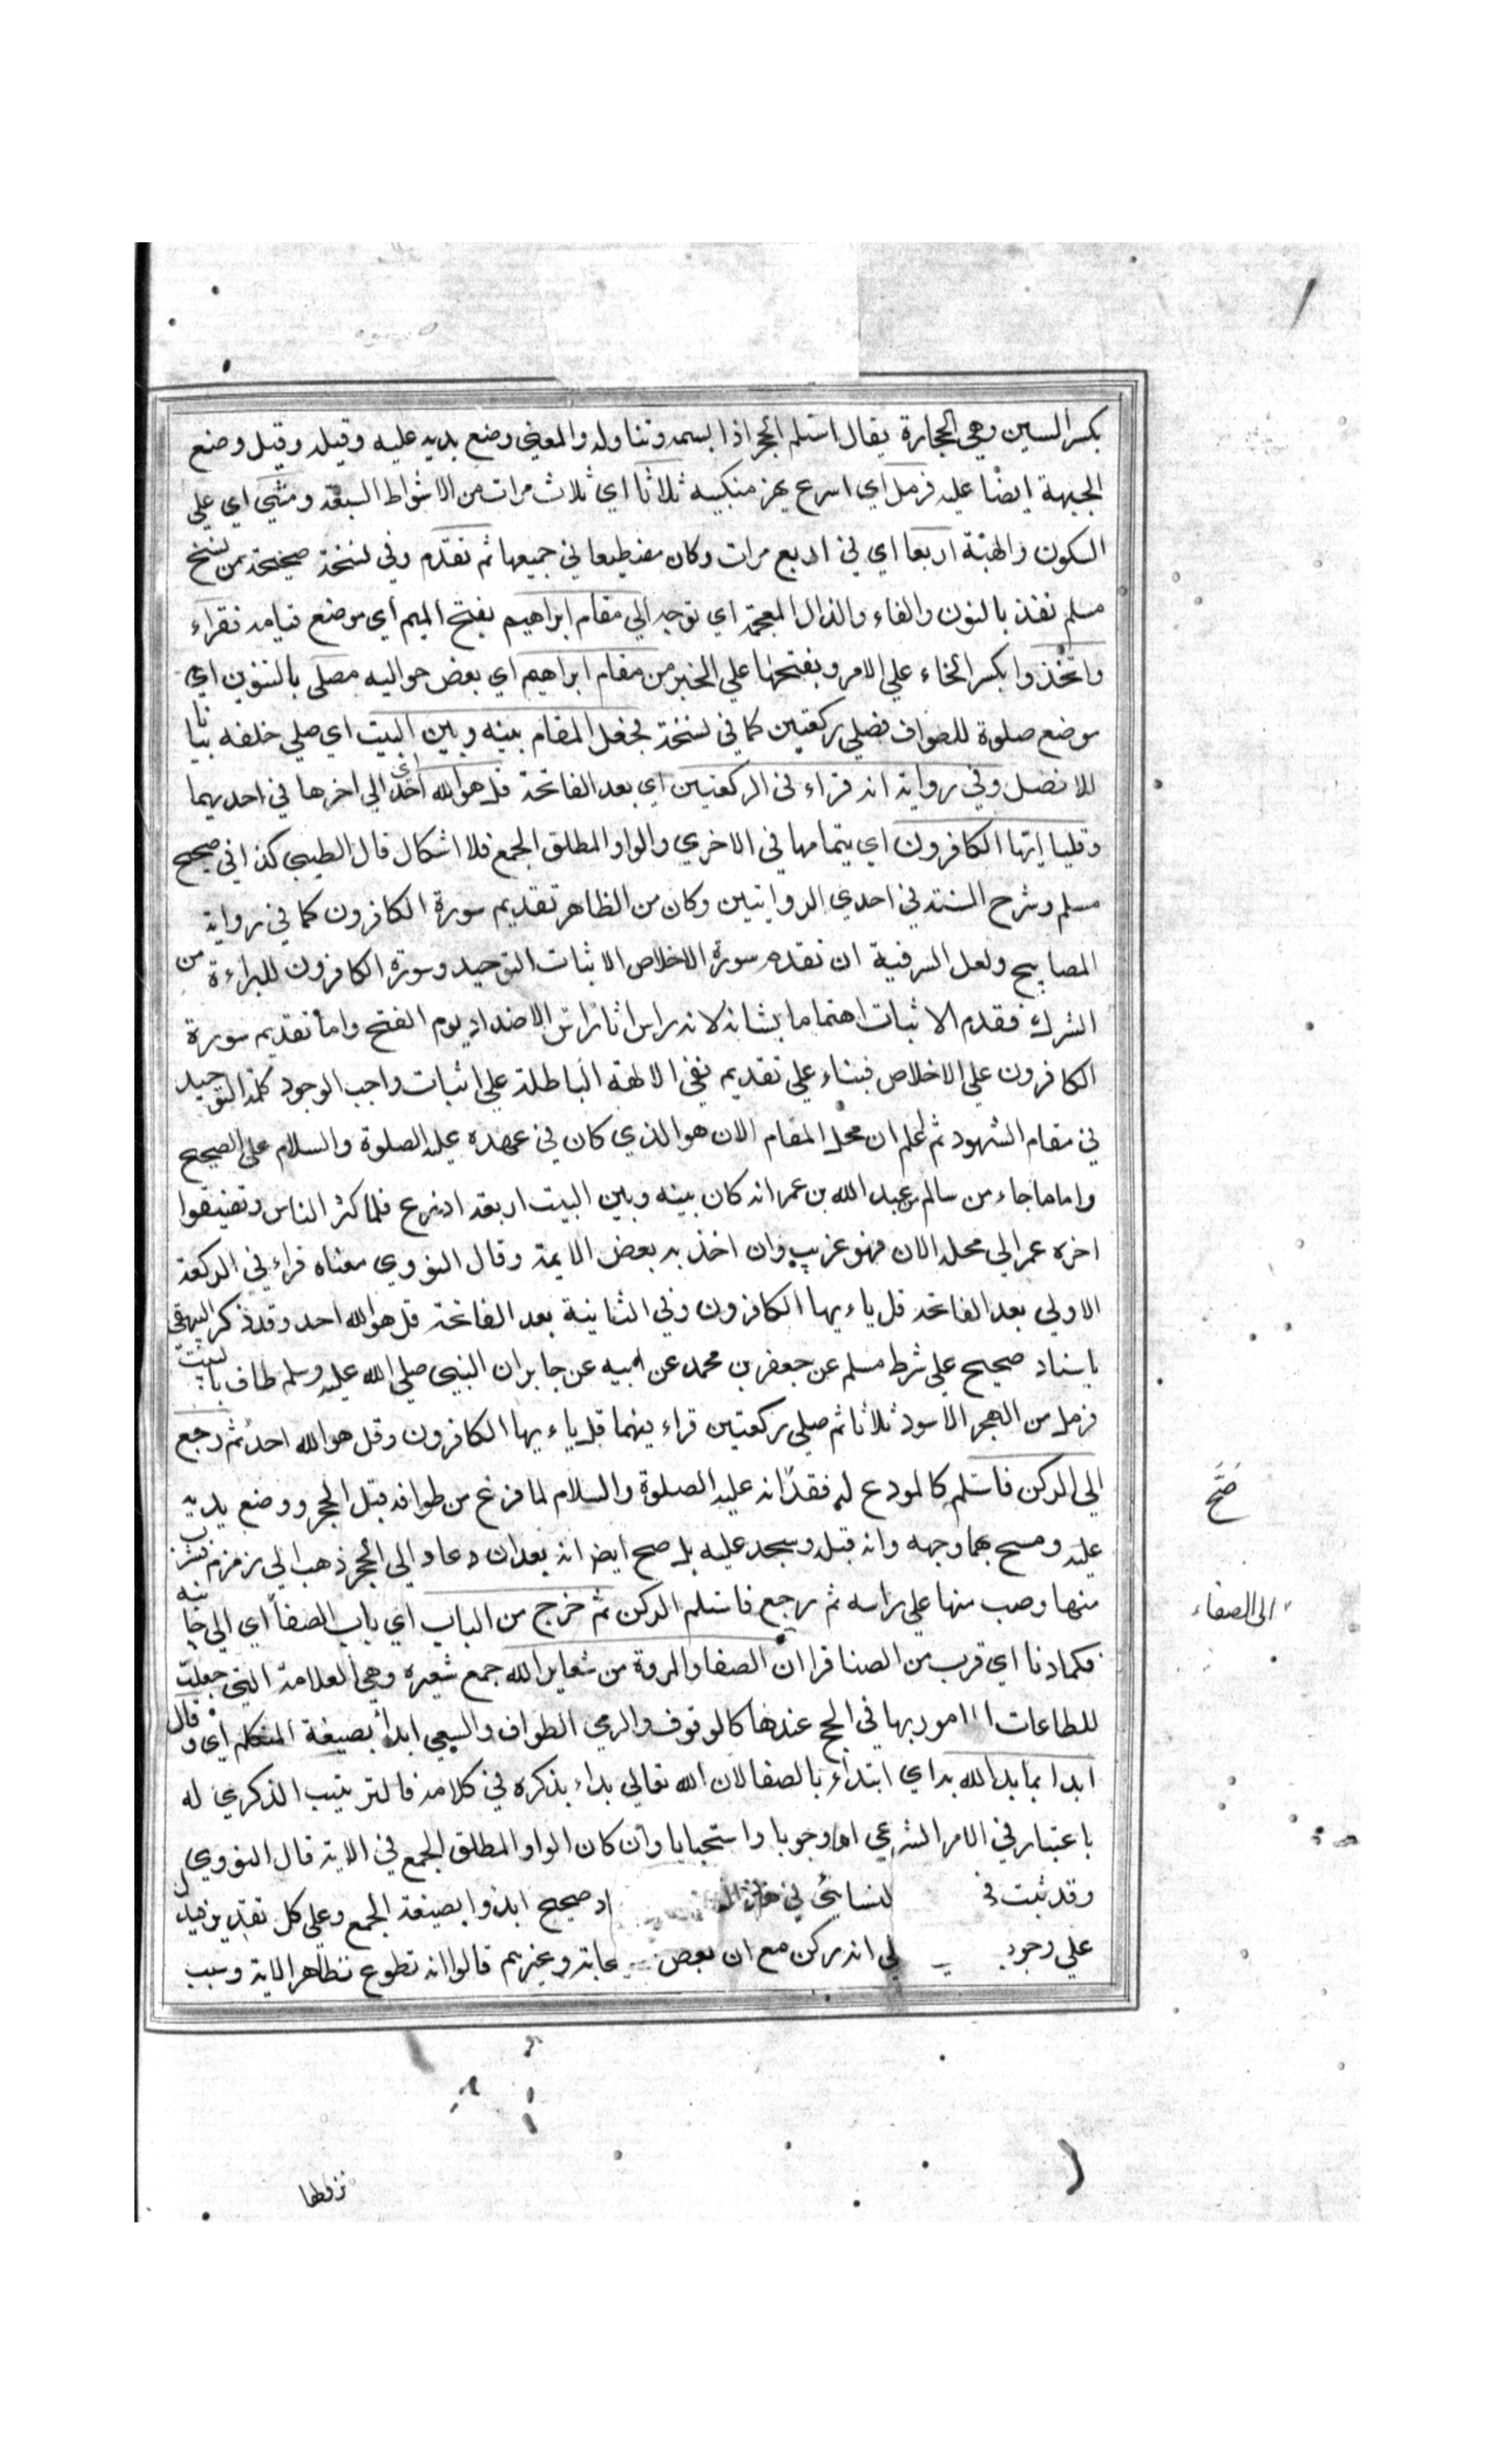 بكسر السين وهي الحجارة يقال استلم الحجر اذا لسمه وتناوله والمعني وضع يديه عليه وقبله وقيل وضع
الجبهة ايضا عليه فرمل اي اسرع يهز منكبيه ثلاثا اي ثلاث مرات من الاشواط السبعة ومشي اي علي
السكون والهنة اربعا اي في اربع مرات وكان مضطبعا في جميعها ثم تقدم وفي نسخة صحيحة من نسخ
مسلم نفذ بالنون والفاء والذال المعجمة اي توجه الي مقام ابراهيم بفتح الميم اي موضع قيامه فقراء
واتخذوا بكسر الخاء علي الامر وبفتحها علي الخبر من مقام ابراهيم اي بعض حواليه مصلي بالتنوين اي
موضع صلوة للطواف فصلي ركعتين كما في نسخة فجعل المقام بينه وبين البيت اي صلي خلفه بيانا
للافضل وفي رواية انه قراء في الركعتين اي بعد الفاتحة قل هو الله احد اي الي اخرها في احديهما
وقل يا ايها الكافرون اي بتمامها في الاخري والواو لمطلق الجمع فلا اشكال قال الطيبي كذا في صحيح
مسلم وشرح السنة في احدي الروايتين وكان من الظاهر تقديم سورة الكافرون كما في رواية
المصابيح ولعل السر فيه ان تقدم سورة الاخلاص لاثبات التوحيد وسورة الكافرون للبراءة من
الشرك فقدم الاثبات اهتماما بشانه لاندراس اثار الاضداد يوم الفتح واما تقديم سورة
الكافرون علي الاخلاص فبناء علي تقديم نفي الالهة الباطلة علي اثبات واجب الوجود كلمة التوحيد
في مقام الشهود ثم اعلم ان محل المقام الان هو الذي كان في عهده عليه الصلوة والسلام علي الصحيح
واما ما جاء من سالم بن عبد الله بن عمر انه كان بينه وبين البيت اربعة اذرع فلما كثر الناس وتضيقوا
اخره عمر الي محله الان فهو غريب وان اخذ به بعض الايمة وقال النووي معناه قراء في الركعة
الاولي بعد الفاتحة قل ياءيها الكافرون وفي الثانية بعد الفاتحة قل هو الله احد وقد ذكر البيهقي
باسناد صحيح علي شرط مسلم عن جعفر بن محمد عن ابيه عن جابر ان النبي صلي الله عليه وسلم طاف بالبيت
فرمل من الحجر الاسود ثلاثا ثم صلي ركعتين قراء فيهما قل ياءيها الكافرون وقل هو الله احد ثم رجع
الي الركن فاستلم كالمودع له فقد انه عليه الصلوة والسلام لما فرغ من طوافه قبل الحجر ووضع يديه
صح
عليه ومسح بهما وجهه وانه قبله وسجد عليه بل صح ايضا انه بعد ان عاد الي الحجر ذهب الي زمزم فشرب
منها وصب منها علي راسه ثم رجع فاستلم الركن ثم خرج من الباب اي باب الصفا اي الي جانبه
الي الصفاء
فكما دنا اي قرب من الصفا قرا ان الصفا والمروة من شعاير الله جمع شعيرة وهي العلامة التي جعلت
للطاعات المامور بها في الحج عندها كالوقوف والرمي الطواف والسعي ابدأ بصيغة المتكلم اي وقال
ابدا بما بدا الله بداي ابتداء بالصفا لان الله تعالي بداء بذكره في كلامه فالترتيب الذكري له
باعتبار في الامر الشرعي اما وجوبا واستحبابا وان كان الواو لمطلق الجمع في الاية قال النووي
وقد ثبت في لنسايئ في هذا صحيح ابدؤا بصيغة الجمع وعلي كل تقدير
علي وجوب لي انه ركن مع ان بعض وغيرهم قالوا انه تطوع لظاهر الاية وسبب
نزولها